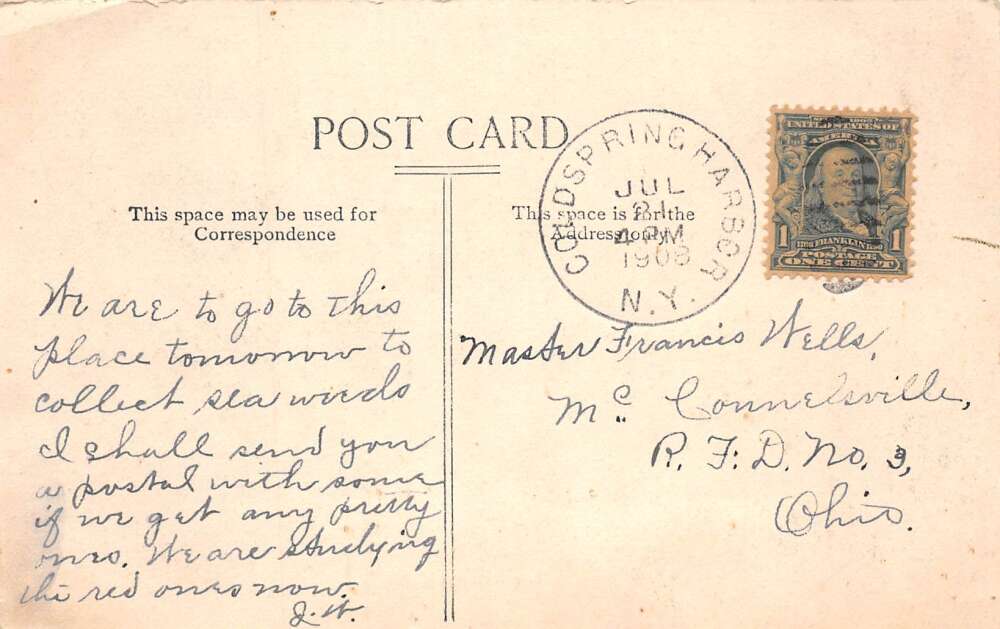 POST CARD
This space may be used for
Correspondence
We are to go to this
place tomorrow to
collect sea weeds
I shall send you
a postal with some
if we get any pretty
ones. We are studying
the red ones now.
This space is for the
Address only.
COLD SPRING HARBOR
JUL
21
4 PM
1908
N.Y.
SERIES 1902
UNITED STATES OF
AMERICA
1706 FRANKLIN 1790
1 1
POSTAGE
ONE CENT
Master Francis Wells,
Mc. Connelsville,
R. F. D. No. 3,
Ohio.